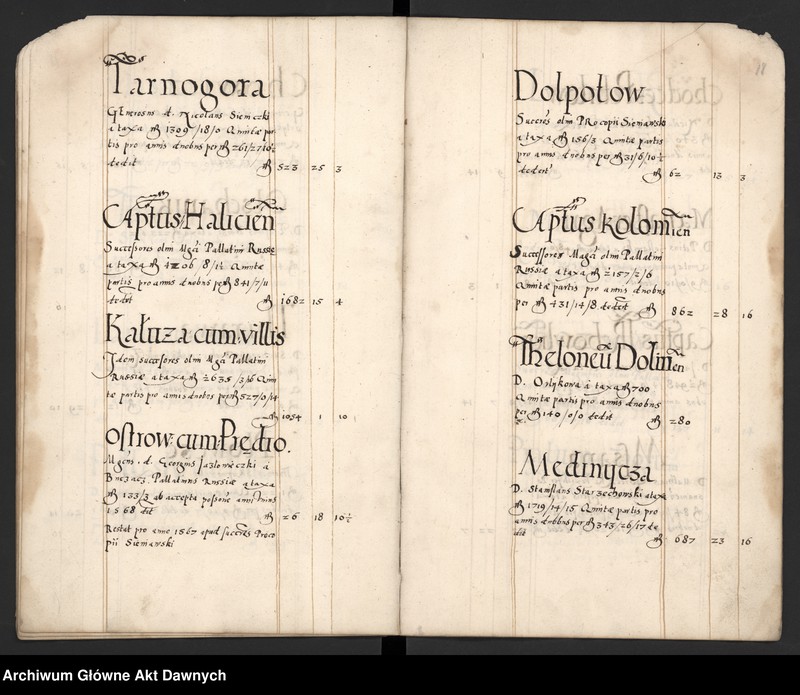 Tarnogora
Generosus d. Nicolaus Siemczki
a taxa fl 1309/18/0 Quintæ par
tis pro annis duobus per fl 261/27/10½
dedit fl 523 25 3
Captus Halicień
Successores olim Mgci Pallatini Russiæ
a taxa fl 4206/8/1½ Quintæ
partis pro annis duobus per fl 841/7/11
dedit fl 1682 15 4
Kałuza cum villis
Idem successores olim Mgci Pallatini
Russiæ a taxa fl 2635/3/16 Quin
tæ partis pro annis duobus per fl 527/0/14
fl 1054 1 10
Ostrow cum Prędio.
Mgcus. d. Georgius Jazlowieczki a
Buczacz. Pallatinus Russiæ a taxa
fl 133/3 ab accepta possone anni unius
1568 dit fl 26 18 10½
Restat pro anno 1567 apud succeres Proco
pii Siemawski
Dolpotow
Succres olim Procopii Siemawski
a taxa fl 156/3 Quintæ partis
pro annis duobus per fl 31/6/10½
dedert fl 62 13 3
Captus Kolomień
Successores Magci olim Pallatini
Russiæ a taxa fl 2157/2/6
Quintæ partis pro annis duobus
per fl 431/14/8 dedert fl 862 28 16
Theloneū Dolinień
D. Orlykowa a taxa fl 700
Quintæ partis pro annis duobus
per fl 140/0/0 dedit fl 280
Medinycza
D. Stanislaus Starzechowski a taxa
fl 1719/14/15 Quintæ partis pro
annis duobus per fl 343/26/17 de
dit fl 687 23 16
Archiwum Główne Akt Dawnych